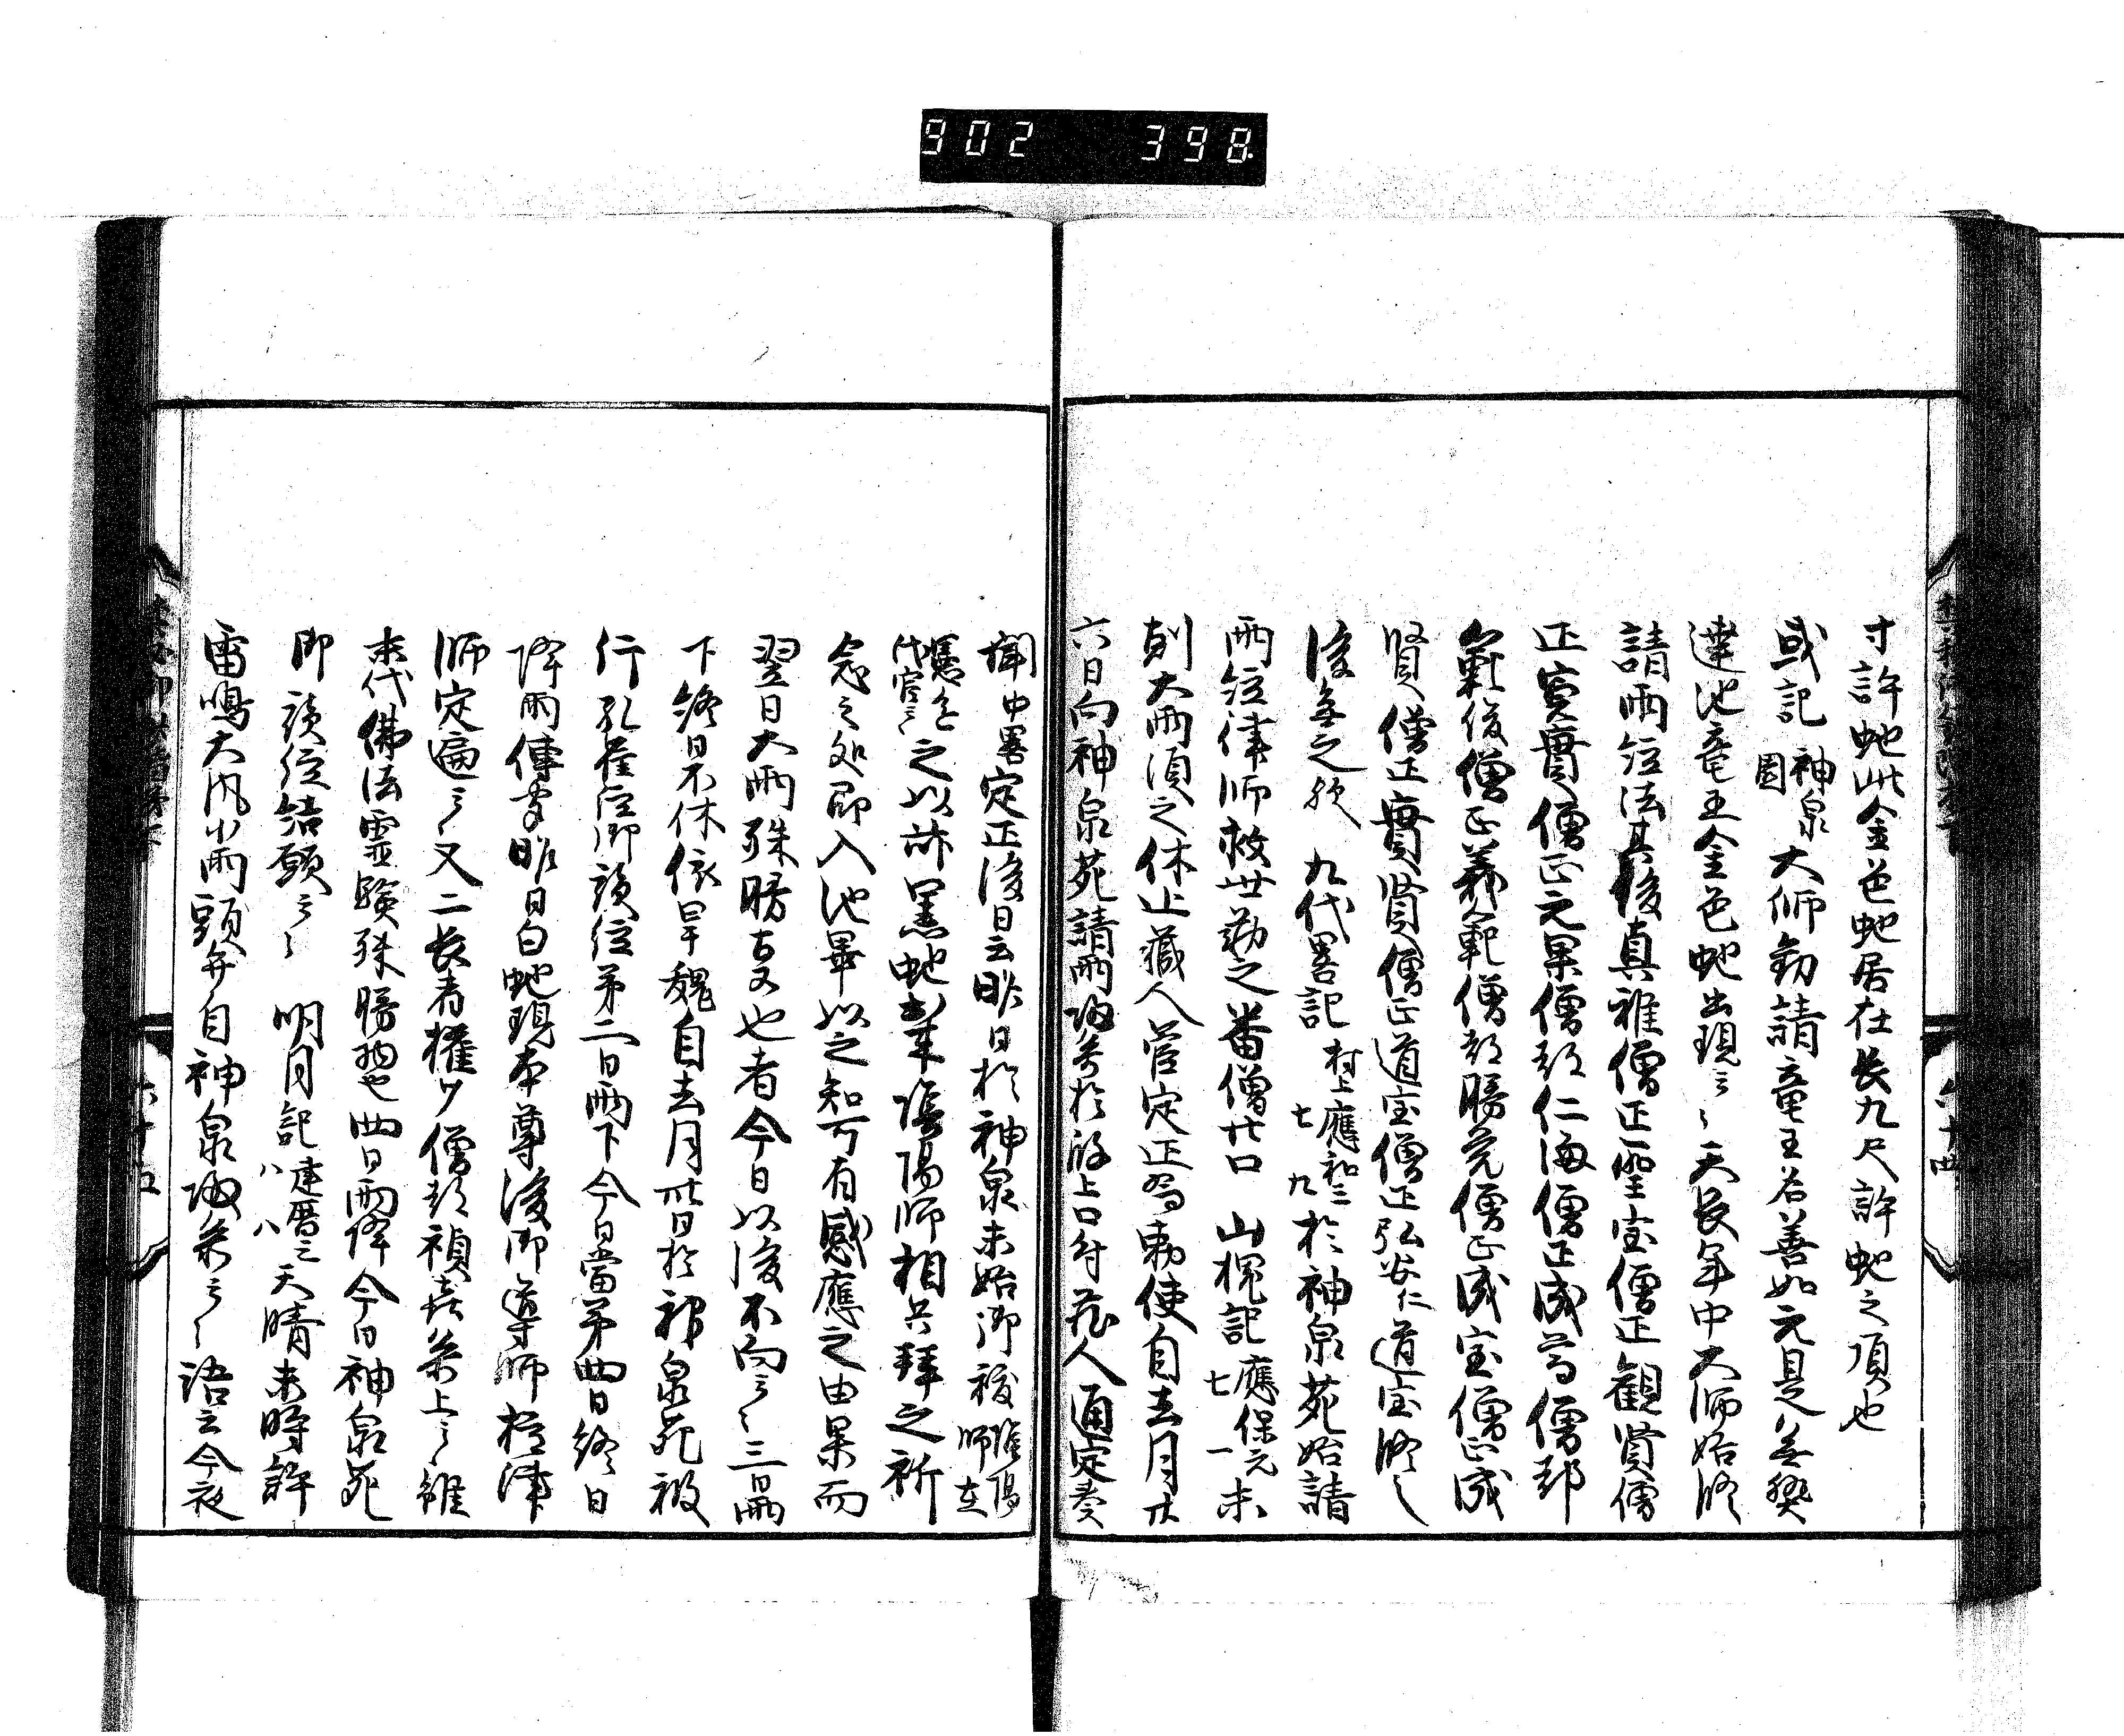 902 398
寸許蛇此金色蛇居在長九尺許蛇之頂也
或記神泉大師勧請竜王名善如元是無熱
達池竜王金色蛇出現云々天長年中大師始修
請雨経法其後真雅僧正聖宝僧正観賢僧
正寛空僧正元杲僧都仁海僧正成尊僧都
範俊僧正義範僧都勝覚僧正成宝僧正成
賢僧正實賢僧正道宝僧正弘安仁道宝修之
後無之歟 九代畧記村上應和三七九於神泉苑始請
雨経律師救世勤之番僧廿口 山槐記應保元七一未
刻大雨須之休止蔵人菅定正為勅使自去月廿
六日向神泉苑請雨
蔵人通定奏
聞申畧定正後日云昨日於神泉未始御祓陰陽師在
憲之代官云々之以赤黒蛇 陰陽師相共拜之祈
念之処即入池畢以之知可有感應之由果而
翌日大雨殊勝事也者今日以後不向云々三日雨
下終日不休依旱魃自去月廿日於神泉苑被
行孔雀経御読経第二日雨下今日當第四日終日
降雨傳聞昨日白蛇現本尊後御導師権律
師定遍云々又二長者権少僧都禎喜参上云々雖
末代佛法霊験殊勝也四日雨降今日神泉苑
御読経結願云々 明月記建暦三八八天晴未時許
雷鳴大風小雨頭弁自神泉帰参云々語云今夜